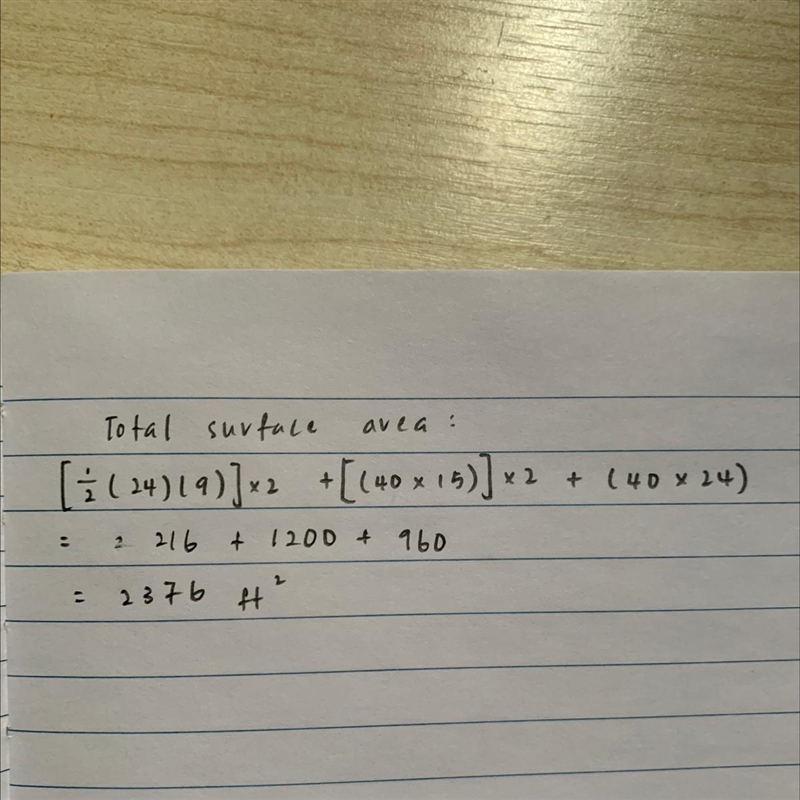 Total surface area:
[1/2 (24)(9)] × 2 + [(40 × 15)] × 2 + (40 × 24)
= = 216 + 1200 + 960
= 2376 ft²